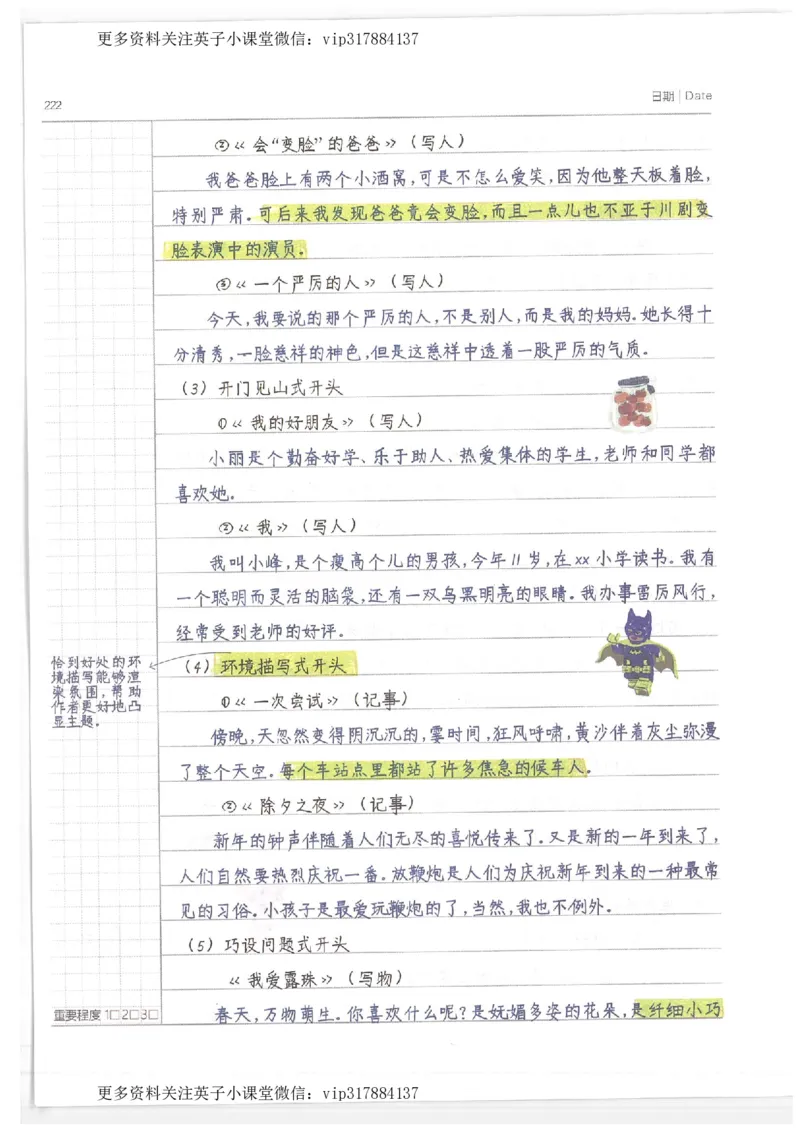 更多资料关注英子小课堂微信：vip317884137
222
日期 | Date
②《会“变脸”的爸爸》（写人）
我爸爸脸上有两个小酒窝，可是不怎么爱笑，因为他整天板着脸，
特别严肃。可后来我发现爸爸竟会变脸，而且一点儿也不亚于川剧变
脸表演中的演员。
③《一个严厉的人》（写人）
今天，我要说的那个严厉的人，不是别人，而是我的妈妈。她长得十
分清秀，一脸慈祥的神色，但是这慈祥中透着一股严厉的气质。
（3）开门见山式开头
①《我的好朋友》（写人）
小丽是个勤奋好学、乐于助人、热爱集体的学生，老师和同学都
喜欢她。
②《我》（写人）
我叫小峰，是个瘦高个儿的男孩，今年11岁，在xx小学读书。我有
一个聪明而灵活的脑袋，还有一双乌黑明亮的眼睛。我办事雷厉风行，
经常受到老师的好评。
恰到好处的环
境描写能够渲
染氛围，帮助
作者更好地凸
显主题。
（4）环境描写式开头
①《一次尝试》（记事）
傍晚，天忽然变得阴沉沉的，霎时间，狂风呼啸，黄沙伴着灰尘弥漫
了整个天空。每个车站点里都站了许多焦急的候车人。
②《除夕之夜》（记事）
新年的钟声伴随着人们无尽的喜悦传来了。又是新的一年到来了，
人们自然要热烈庆祝一番。放鞭炮是人们为庆祝新年到来的一种最常
见的习俗。小孩子是最爱玩鞭炮的了，当然，我也不例外。
（5）巧设问题式开头
《我爱露珠》（写物）
春天，万物萌生。你喜欢什么呢？是妩媚多姿的花朵，是纤细小巧
重要程度 1□2□3□
更多资料关注英子小课堂微信：vip317884137